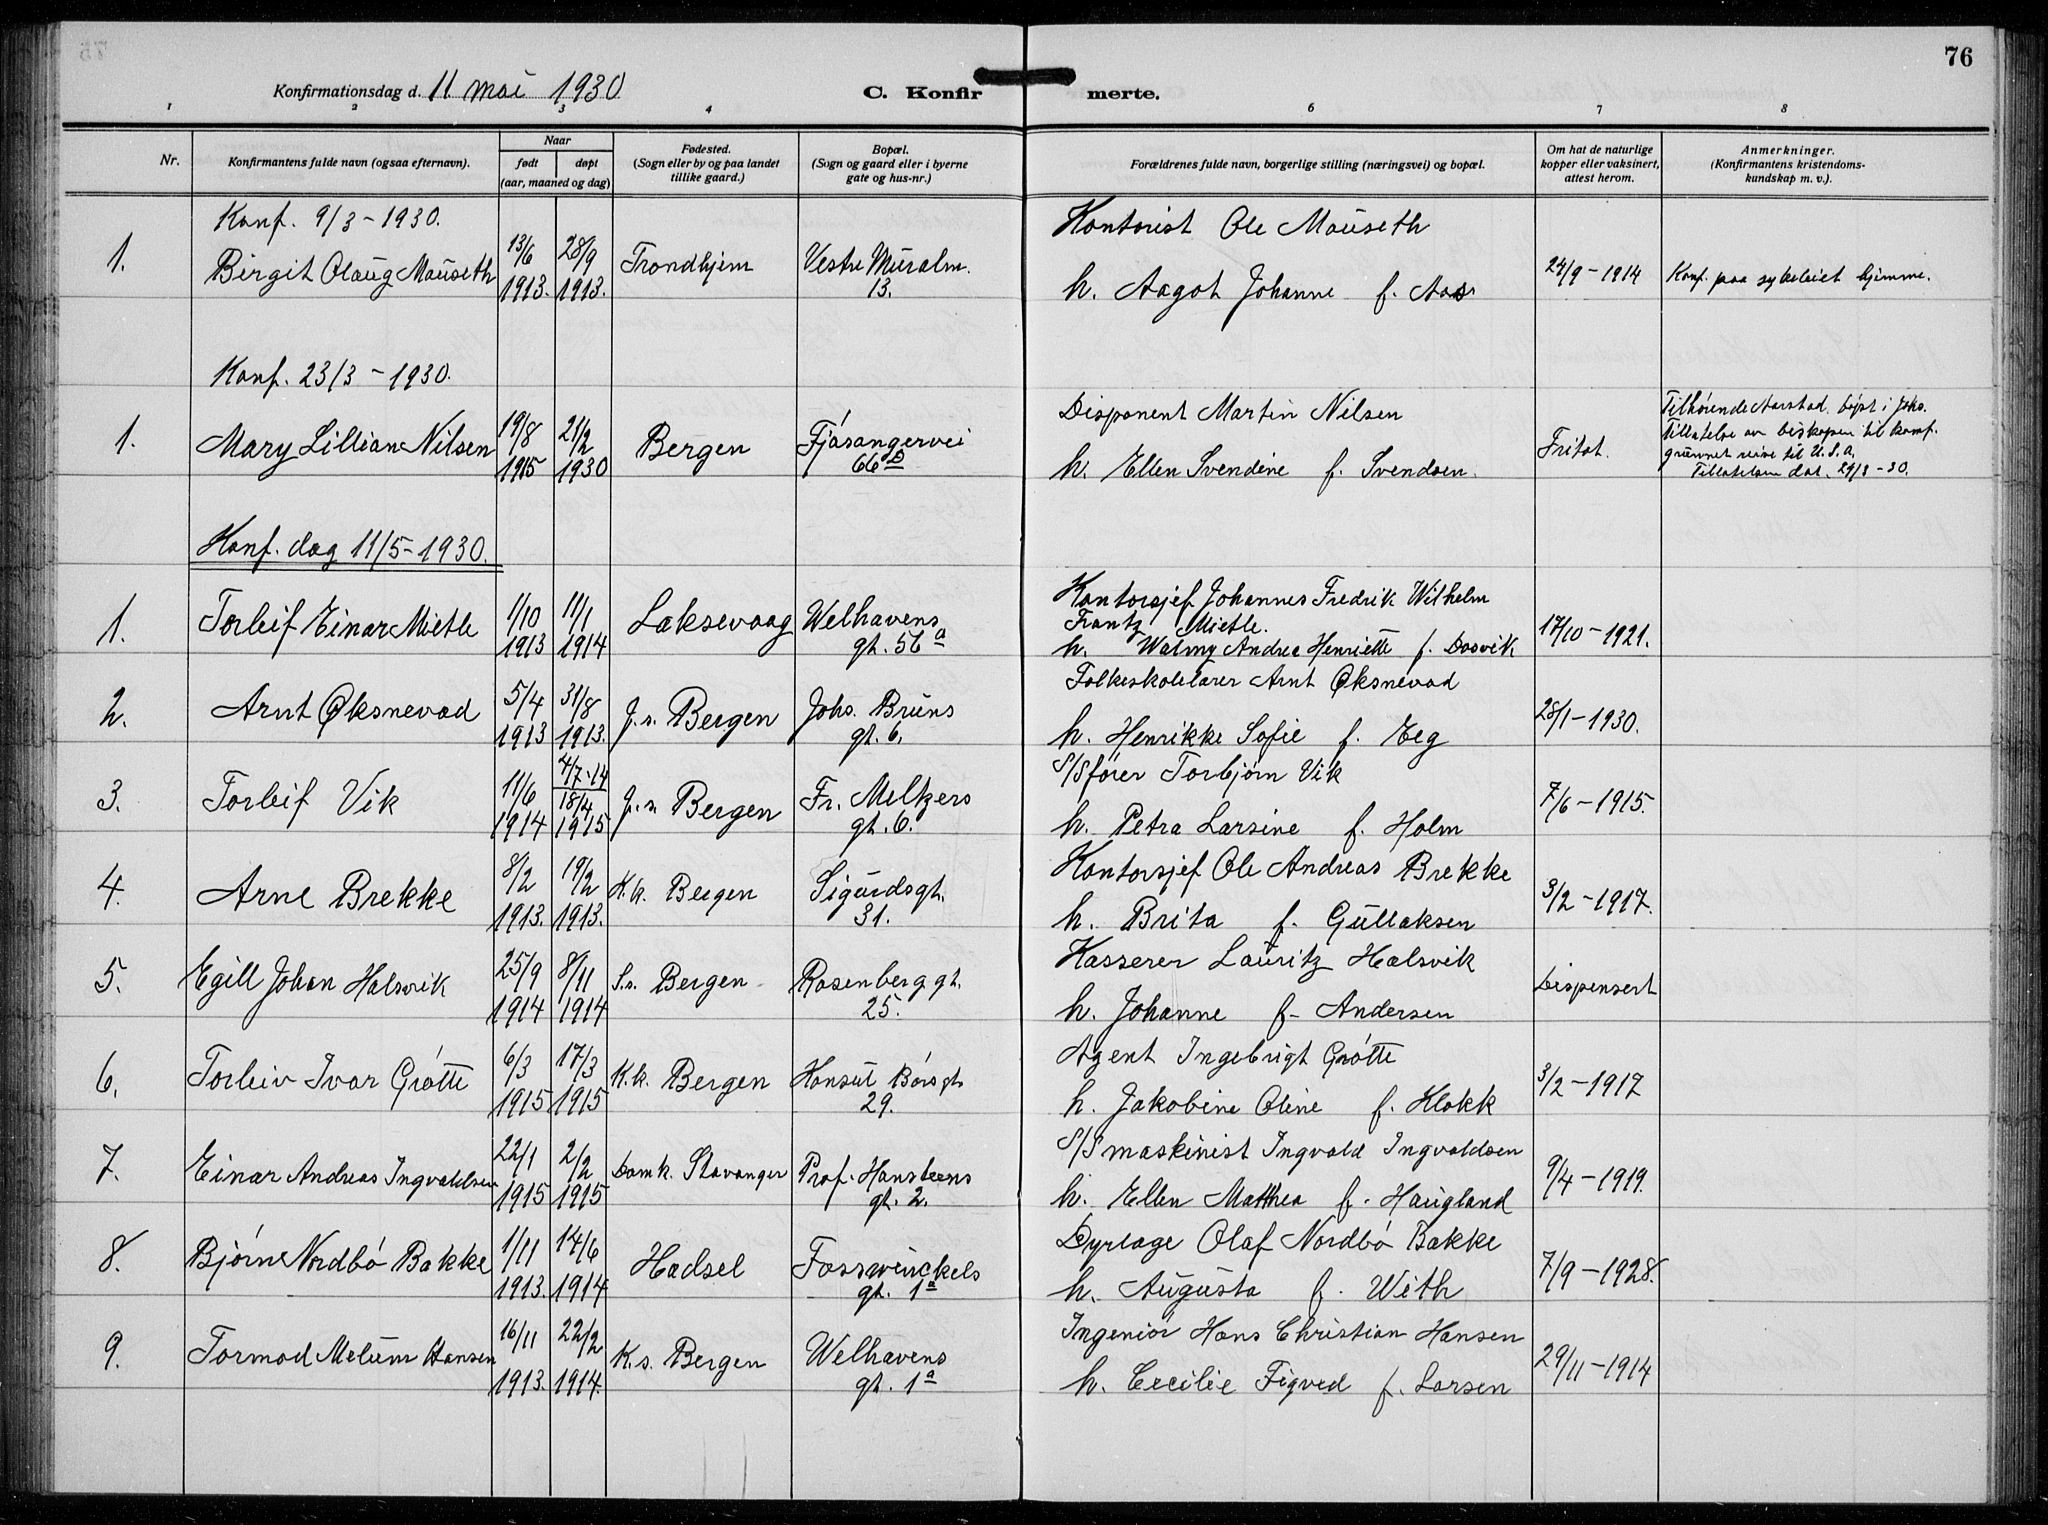 76
Konfirmationsdag d. 11 mai 1930
C. Konfirmerte.
1 2 3 4 6 7 8
Nr.
Konfirmantens fulde navn (ogsaa efternavn).
Naar
født døpt
(aar, maaned og dag)
Fødested.
(Sogn eller by og paa landet
tillike gaard.)
Bopæl.
(Sogn og gaard eller i byerne
gate og hus-nr.)
Forældrenes fulde navn, borgerlige stilling (næringsvei) og bopæl.
Om hat de naturlige
kopper eller vaksinert,
attest herom.
Anmerkninger.
(Konfirmantens kristendoms-
kundskap m. v.).
Konf. 9/3 - 1930.
1. Birgit Olaug Mauseth 13/6 1913. 28/9 1913. Trondhjem Vestre Muralm. 13.
Kontorist Ole Mauseth
h. Aagot Johanne f. Aas
24/9 - 1914
Konf. paa sykeleiet hjemme.
Konf. 23/3 - 1930.
1. Mary Lillian Nilsen 19/8 1915 21/2 1930 Bergen Fjøsangervei 66 B
Disponent Martin Nilsen
h. Ellen Svendine f. Svendsen.
Fritat.
Tilhørende Aarstad. døpt i Johs.
Tillatelse av biskopen til konf.
grunnet reise til U.S.A.
Tillatelsen dat. 29/3 - 30.
Konf. dag 11/5 - 1930.
1. Torleif Einar Mietle 1/10 1913 11/1 1914 Laksevaag Welhavens gt. 56 a
Kontorsjef Johannes Fredrik Wilhelm
Frantz Mietle.
h. Walmy Andrea Henriette f. Dosvik
17/10 - 1921.
2. Arnt Øksnevad 5/4 1913 31/8 1913. J. s. Bergen Johs. Bruns gt. 6.
Folkeskolelærer Arnt Øksnevad
h. Henrikke Sofie f. Eeg
28/1 - 1930.
3. Torleif Vik 11/6 1914 4/7-14 18/4 1915 J. s. Bergen Fr. Meltzers gt. 6.
S/S fører Torbjørn Vik
h. Petra Larsine f. Holm
7/6 - 1915.
4. Arne Brekke 8/2 1913. 19/2 1913. K.k. Bergen Sigurdsgt. 31.
Kontorsjef Ole Andreas Brekke
h. Brita f. Gullaksen
3/2 - 1917.
5. Egill Johan Halsvik 25/9 1914 8/11 1914 S.s. Bergen Rosenberg gt. 25.
Kasserer Lauritz Halsvik
h. Johanne f. Andersen
Dispensert
6. Torleiv Ivar Grøtte 6/3 1915 17/3 1915 K.k. Bergen Konsul Børsgt 29.
Agent Ingebrigt Grøtte
h. Jakobine Oline f. Klokk
3/2 - 1917
7. Einar Andreas Ingvaldsen 22/1 1915 2/2 1915 Domk. Stavanger Prof. Hansteens gt. 2.
S/S maskinist Ingvald Ingvaldsen
h. Ellen Mathea f. Haugland
9/4 - 1919.
8. Bjørn Nordbø Bakke 1/11 1913. 14/6 1914 Hadsel Fosswinckels gt. 1 a
Dyrlæge Olaf Nordbø Bakke
h. Augusta f. With
7/9 - 1928.
9. Tormod Melum Hansen 16/11 1913. 22/2 1914. K.s. Bergen Welhavens gt. 1 a
Ingeniør Hans Christian Hansen
h. Cecilie Figved f. Larsen
29/11 - 1914